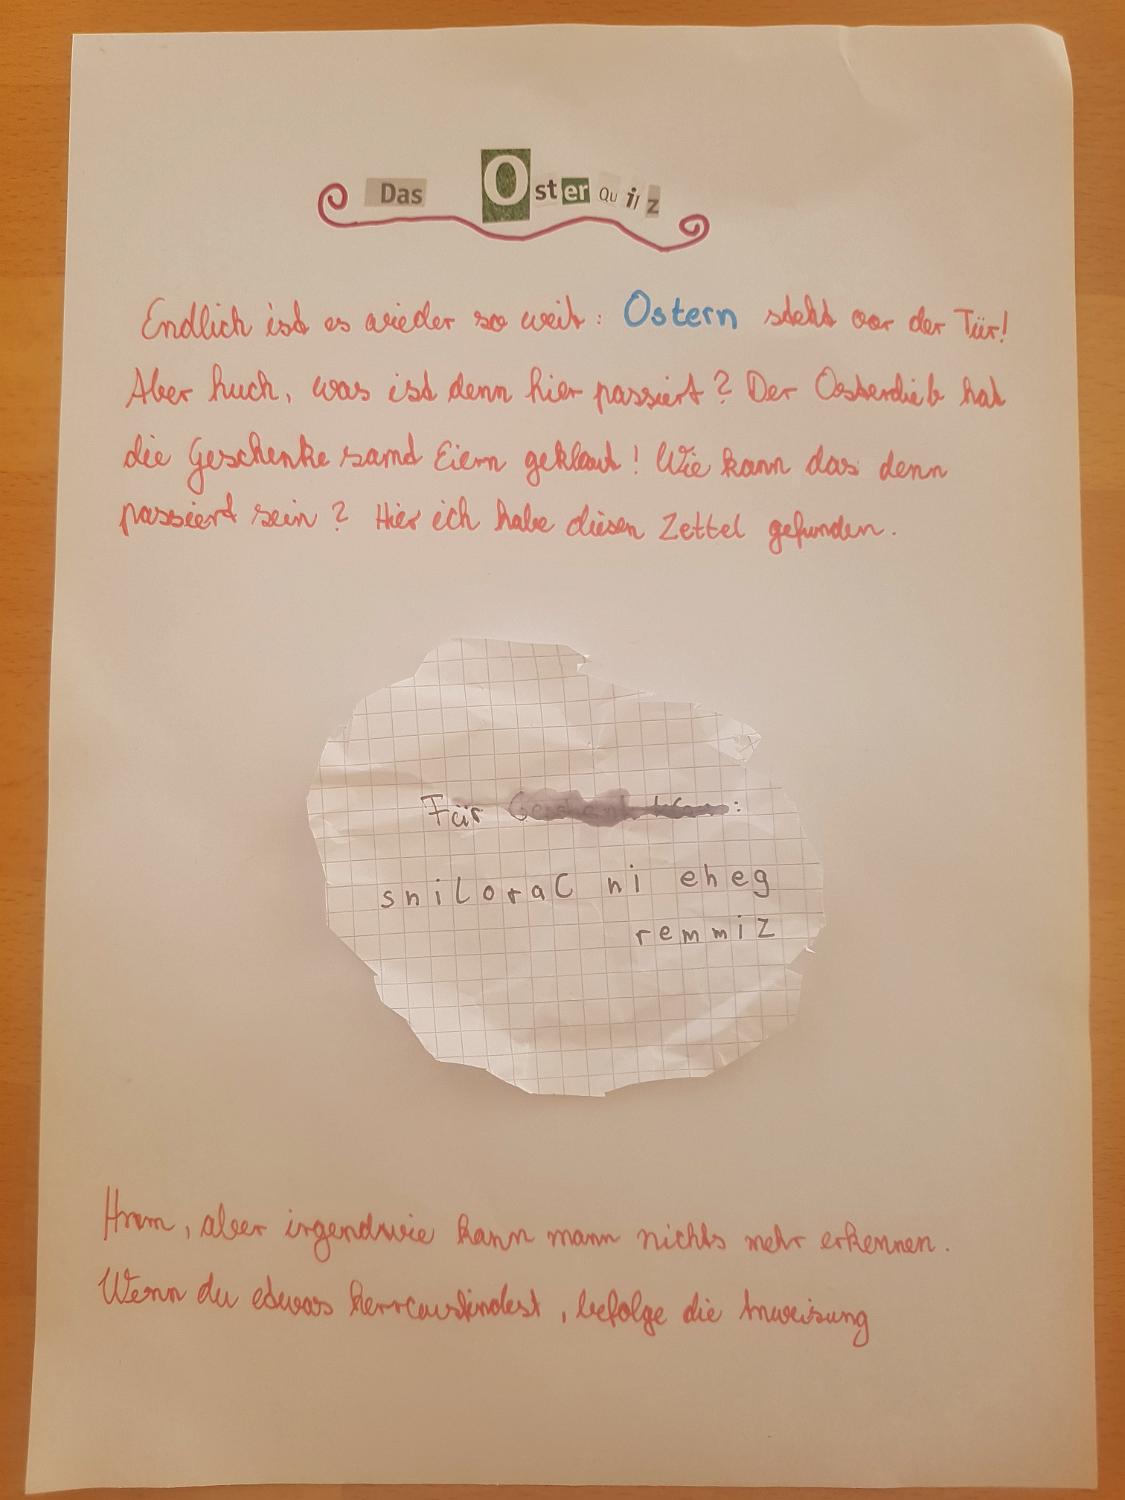 Das Oster Quiz
Endlich ist es wieder so weit: Ostern steht vor der Tür!
Aber huch, was ist denn hier passiert? Der Osterdieb hat
die Geschenke samd Eiern geklaut! Wie kann das denn
passierd sein? Hier ich habe diesen Zettel gefunden.
Für :
sniloraC ni eheg
remmiZ
Hmm, aber irgendwie kann mann nichts mehr erkennen.
Wenn du edwas herrausfindest, befolge die Anweisung